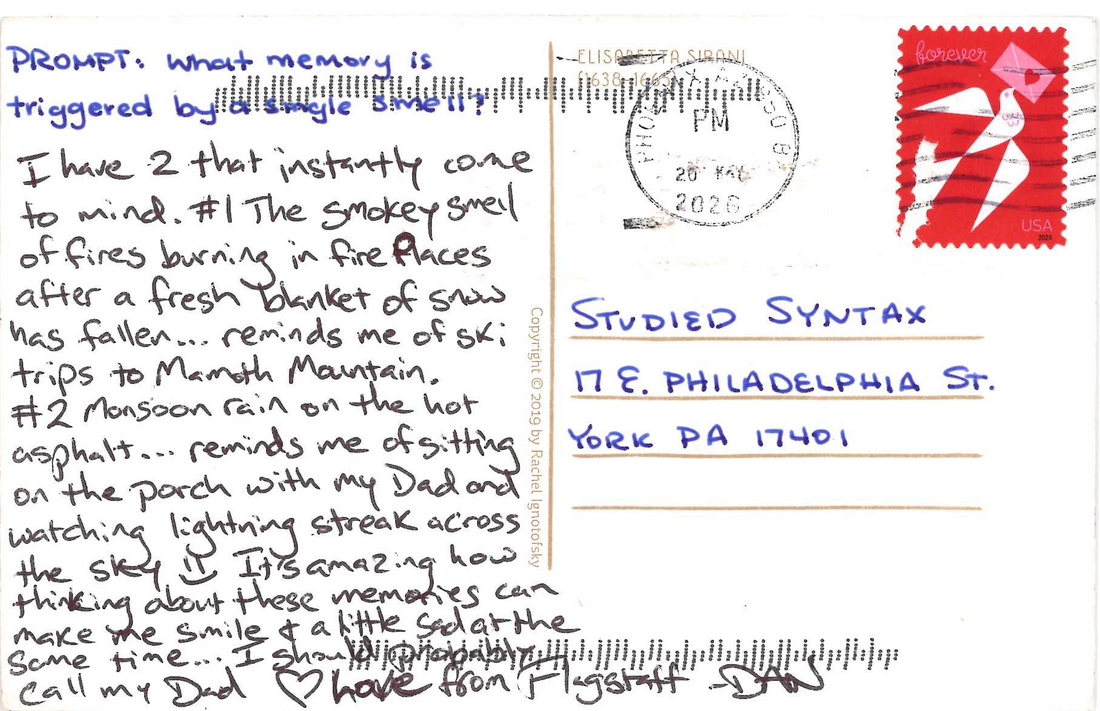 PROMPT: What memory is
triggered by a single smell?
I have 2 that instantly come
to mind. #1 The smokey smell
of fires burning in fire Places
after a fresh blanket of snow
has fallen... reminds me of ski
trips to Mamoth Mountain.
#2 Monsoon rain on the hot
asphalt... reminds me of sitting
on the porch with my Dad and
watching lightning streak across
the sky It's amazing how
thinking about these memories can
make me smile & a little sad at the
same time... I should probably
call my Dad ♡ Love from Flagstaff -DAN
ELISABETTA SIRANI
(1638-1665)
Copyright © 2019 by Rachel Ignotofsky
PHOENIX AZ 850
PM
20
2026
forever
USA
2024
STUDIED SYNTAX
17 E. PHILADELPHIA ST.
YORK PA 17401